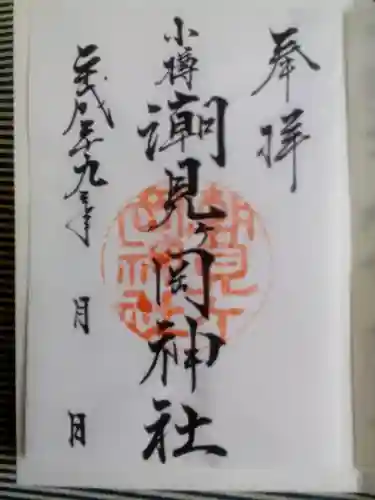 奉拝
小樽
潮見ヶ岡神社
平成二十九年 月 日